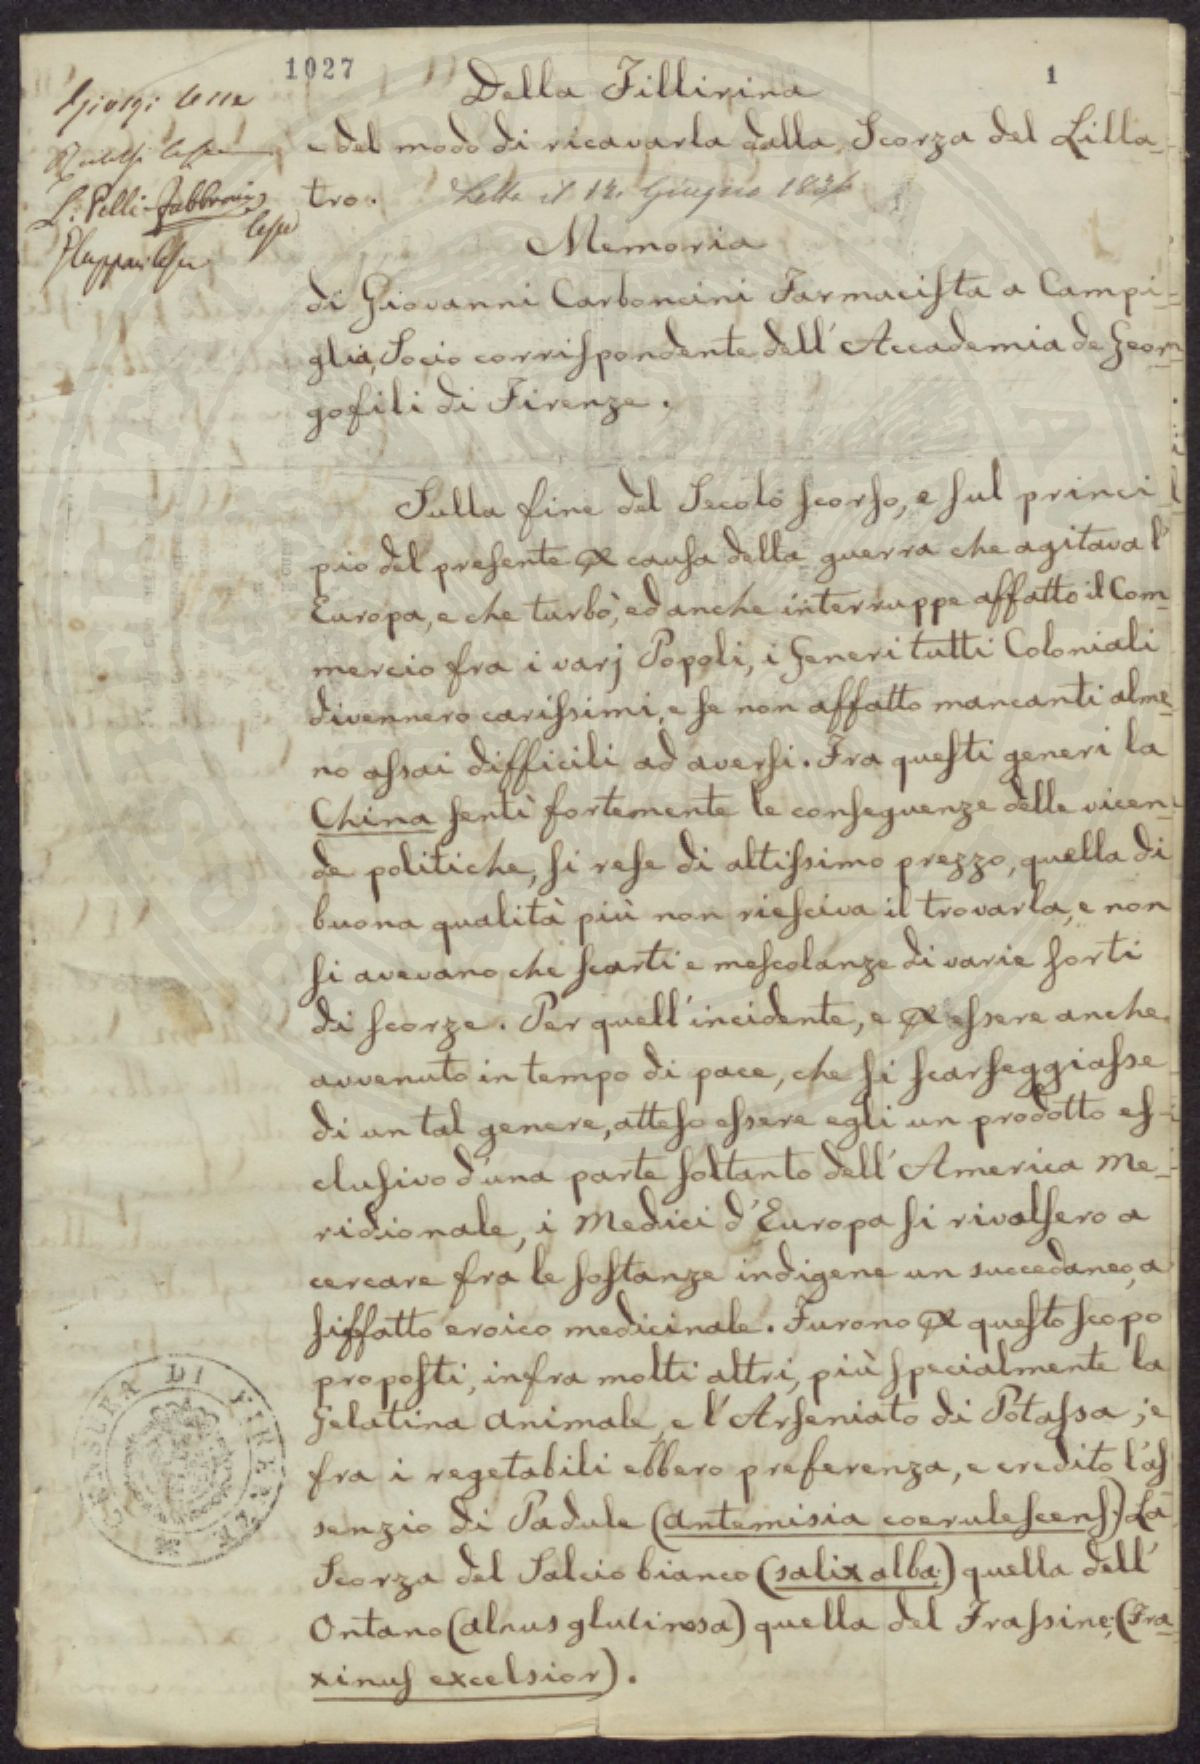 1027
1
Della Fillirina
e del modo di ricavarla dalla Scorza del Lilla-
tro. Letta il 12. Giugno 183
Giorgi lesse
lesse
L: Pelli-Fabbroni
lesse
lesse
Memoria
di Giovanni Carboncini Farmacista a Campi-
glia, Socio corrispondente dell' Accademia de Geor-
gofili di Firenze.
Sulla fine del Secolo scorso, e sul princi
pio del presente p causa della guerra che agitava l'
Europa, e che turbò, ed anche interruppe affatto il Com-
mercio fra i varj Popoli, i generi tutti Coloniali
divennero carissimi, e se non affatto mancanti alme-
no assai difficili ad aversi. Fra questi generi la
China sentì fortemente le conseguenze delle vicen-
de politiche, si rese di altissimo prezzo, quella di
buona qualità più non riesciva il trovarla, e non
si avevano che scarti e mescolanze di varie sorti
di scorze. Per quell' incidente, e p essere anche
avvenuto in tempo di pace, che si scarseggiasse
di un tal genere, atteso essere egli un prodotto es-
clusivo d'una parte soltanto dell' America Me-
ridionale, i Medici d'Europa si rivolsero a
cercare fra le sostanze indigene un succedaneo, a
siffatto eroico medicinale. Furono p questo scopo
proposti, infra molti altri, più specialmente la
gelatina animale, e l'Arseniato di Potassa; e
fra i vegetabili ebbero preferenza, e credito l'as
senzio di Padule (Antemisia coerulescens:) La
Scorza del Salcio bianco (salix alba:) quella dell'
Ontano (alnus glutinosa) quella del Frassine; (Fra-
xinus excelsior).
CONSULTA DI FIRENZE